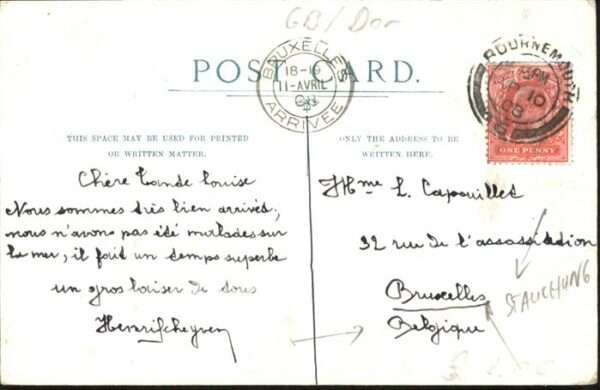 GB/Dor
POST CARD.
BRUXELLES
18-19
11-AVRIL
08
ARRIVÉE
BOURNEMOUTH
AP 10
08
ONE PENNY
THIS SPACE MAY BE USED FOR PRINTED
OR WRITTEN MATTER.
ONLY THE ADDRESS TO BE
WRITTEN HERE.
Chère Tante Louise
Nous sommes très bien arrivés,
nous n'avons pas été malades sur
la mer, il fait un temps superbe
un gros baiser de tous
Henri
Mme L. Capouillet
32 rue de l'association
Bruxelles
Belgique